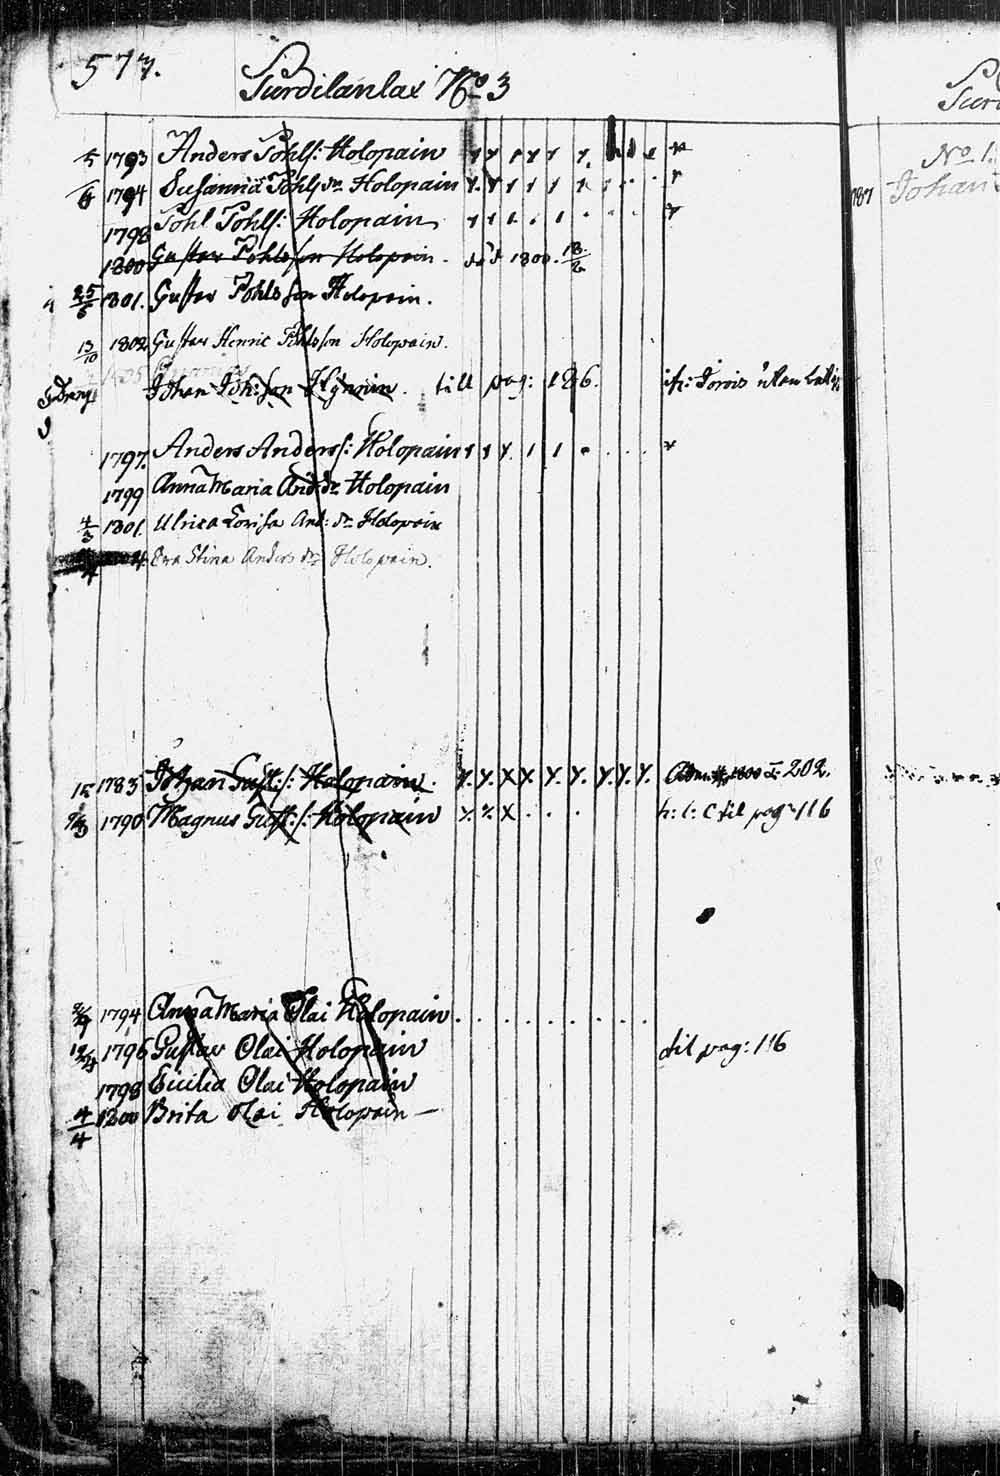 577.
Surdilanlax No 3
5 1793 Anders Pohls: Holopain
6 1794 Susanna Pohls dr Holopain
1798 Pohl Pohls: Holopain
1800 Gustav Pohlsson Holopain. död 1800. 13/2
25/5 1801. Gustav Pohlsson Holopain.
13/10 1802 Gustav Henric Pohlsson Holopain.
Dreng Johan Joh: son Hynnin. till pag: 186.
1797. Anders Anders: Holopain
1799 Anna Maria And: dr Holopain
4/3 1801. Ulrica Lovisa And: dr Holopain
Eva Stina Anders dr Holopain.
15 1783 Johan Gust: s: Holopain. 1800 202.
1790 Magnus Gust: s: Holopain h: l: C til pag 116
1794 Anna Maria Olai Holopain
1796 Gustav Olai Holopain til pag: 116
1798 Cicilia Olai Holopain
4/4 1800 Brita Olai Holopain
Surd
No 1.
187 Johan